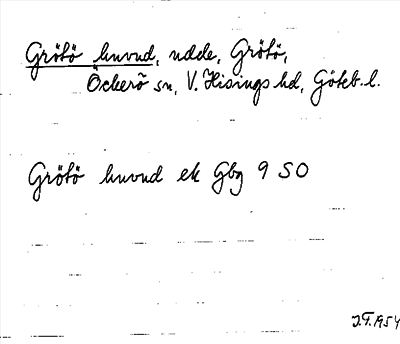 Grötö huvud, udde, Grötö,
Öckerö sn, V. Hisings hd, Göteb. l.
Grötö huvud ek Gbg 9 SO
J.F. 1954